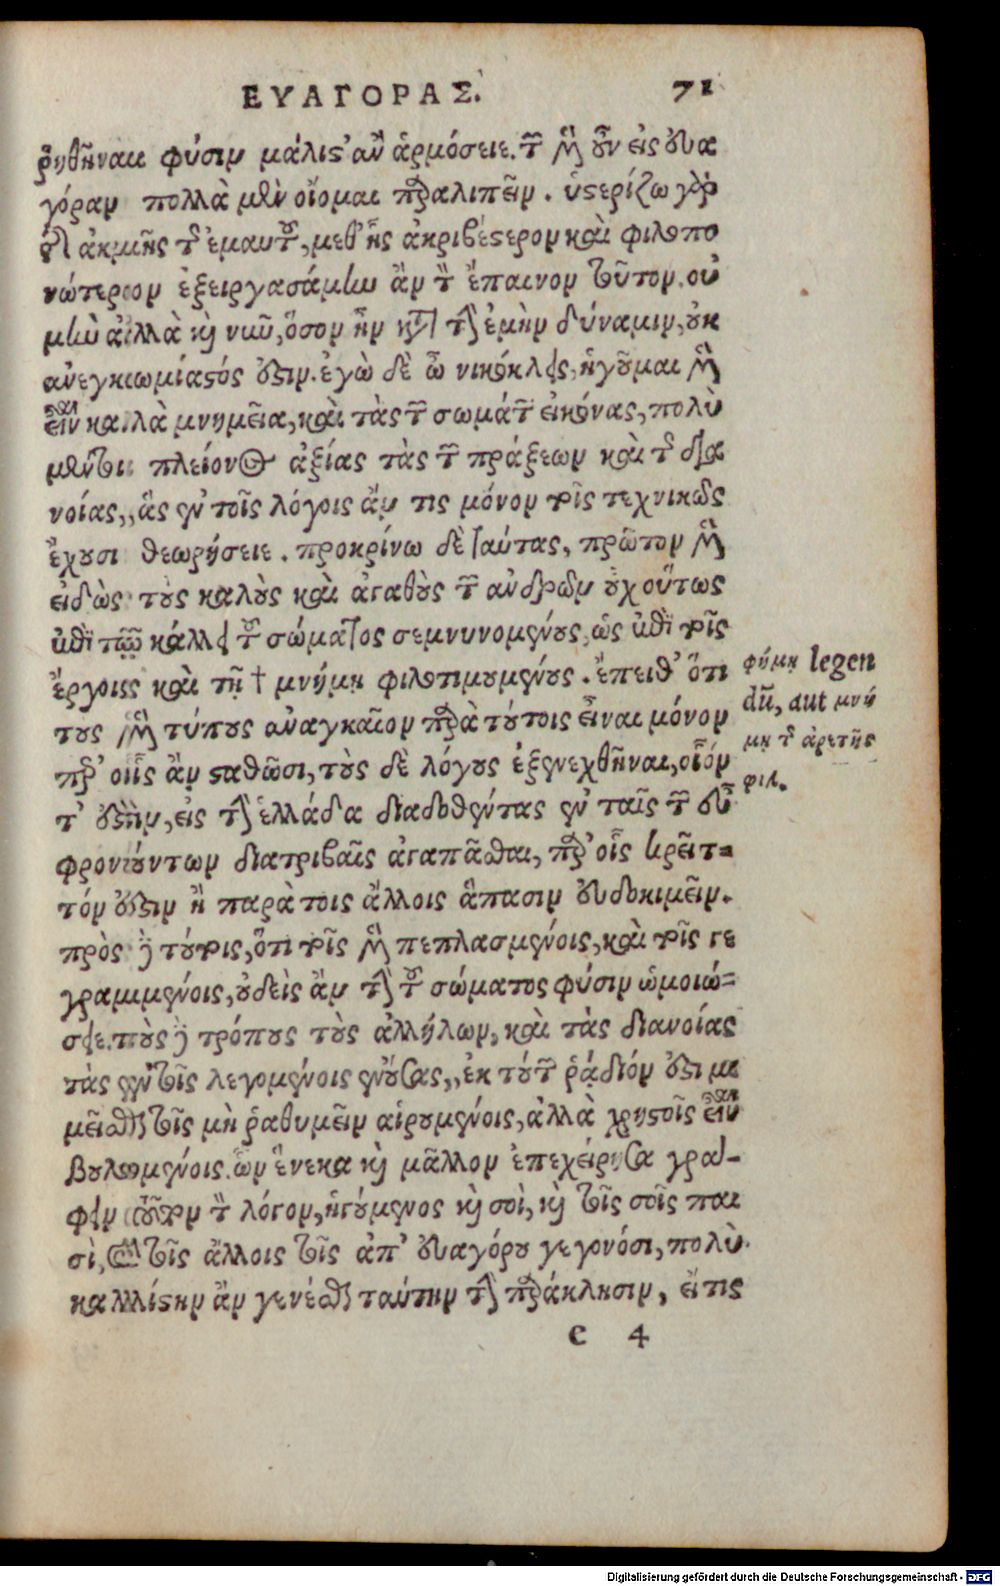 ΕΥΑΓΟΡΑΣ. 71
ῥηθῆναι φύσιν μάλιστ' ἂν ἁρμόσειε. τῶν μὲν οὖν εἰς Εὐα
γόραν πολλὰ μὲν οἴομαι παραλιπεῖν. ὑστερίζω γὰρ
τῆς ἀκμῆς τῆς ἐμαυτοῦ, μεθ' ἧς ἀκριβέστερον καὶ φιλοπο
νώτερον ἐξειργασάμην ἂν τὸν ἔπαινον τοῦτον. οὐ
μὴν ἀλλὰ καὶ νῦν, ὅσον ἦν κατὰ τὴν ἐμὴν δύναμιν, οὐκ
ἀνεγκωμίαστός ἐστιν. ἐγὼ δὲ ὦ νικόκλεις, ἡγοῦμαι μὲν
εἶναι καλὰ μνημεῖα, καὶ τὰς τῶν σωμάτων εἰκόνας, πολὺ
μέντοι πλείονος ἀξίας τὰς τῶν πράξεων καὶ τῆς δια
νοίας, ἃς ἐν τοῖς λόγοις ἄν τις μόνον τοῖς τεχνικῶς
ἔχουσι θεωρήσειε. προκρίνω δὲ ταύτας, πρῶτον μὲν
εἰδὼς τοὺς καλοὺς καὶ ἀγαθοὺς τῶν ἀνδρῶν οὐχ οὕτως
ἐπὶ τῷ κάλλει τοῦ σώματος σεμνυνομένους, ὡς ἐπὶ τοῖς
ἔργοις καὶ τῇ † μνήμῃ φιλοτιμουμένους. ἔπειθ' ὅτι
τοὺς μὲν τύπους ἀναγκαῖον παρὰ τούτοις εἶναι μόνον
παρ' οἷς ἂν σταθῶσι, τοὺς δὲ λόγους ἐξενεχθῆναι, οἷόν
τ' ἐστὶν, εἰς τὴν ἑλλάδα διαδοθέντας ἐν ταῖς τῶν εὖ
φρονούντων διατριβαῖς ἀγαπᾶσθαι, παρ' οἷς κρεῖτ=
τόν ἐστιν ἢ παρὰ τοις ἄλλοις ἅπασιν εὐδοκιμεῖν.
πρὸς δὲ τούτοις, ὅτι τοῖς μὲν πεπλασμένοις, καὶ τοῖς γε
γραμμένοις, οὐδεὶς ἂν τὴν τοῦ σώματος φύσιν ὡμοιώ=
σειε. τοὺς δὲ τρόπους τοὺς ἀλλήλων, καὶ τὰς διανοίας
τὰς ἐν τοῖς λεγομένοις ἐνούσας, ἐκ τούτων ῥᾴδιόν ἐστι μι
μεῖσθαι τοῖς μὴ ῥαθυμεῖν αἱρουμένοις, ἀλλὰ χρηστοῖς εἶναι
βουλομένοις. ὧν ἕνεκα καὶ μᾶλλον ἐπεχείρησα γρα-
φειν τοῦτον τὸν λόγον, ἡγούμενος καὶ σοὶ, καὶ τοῖς σοῖς παι
σὶ, καὶ τοῖς ἄλλοις τοῖς ἀπ' Εὐαγόρου γεγονόσι, πολὺ
καλλίστην ἂν γενέσθαι ταύτην τὴν παράκλησιν, εἴ τις
e 4
φήμῃ legen
dū, aut μνή
μῃ τῆς ἀρετῆς
φιλ.
Digitalisierung gefördert durch die Deutsche Forschungsgemeinschaft - DFG